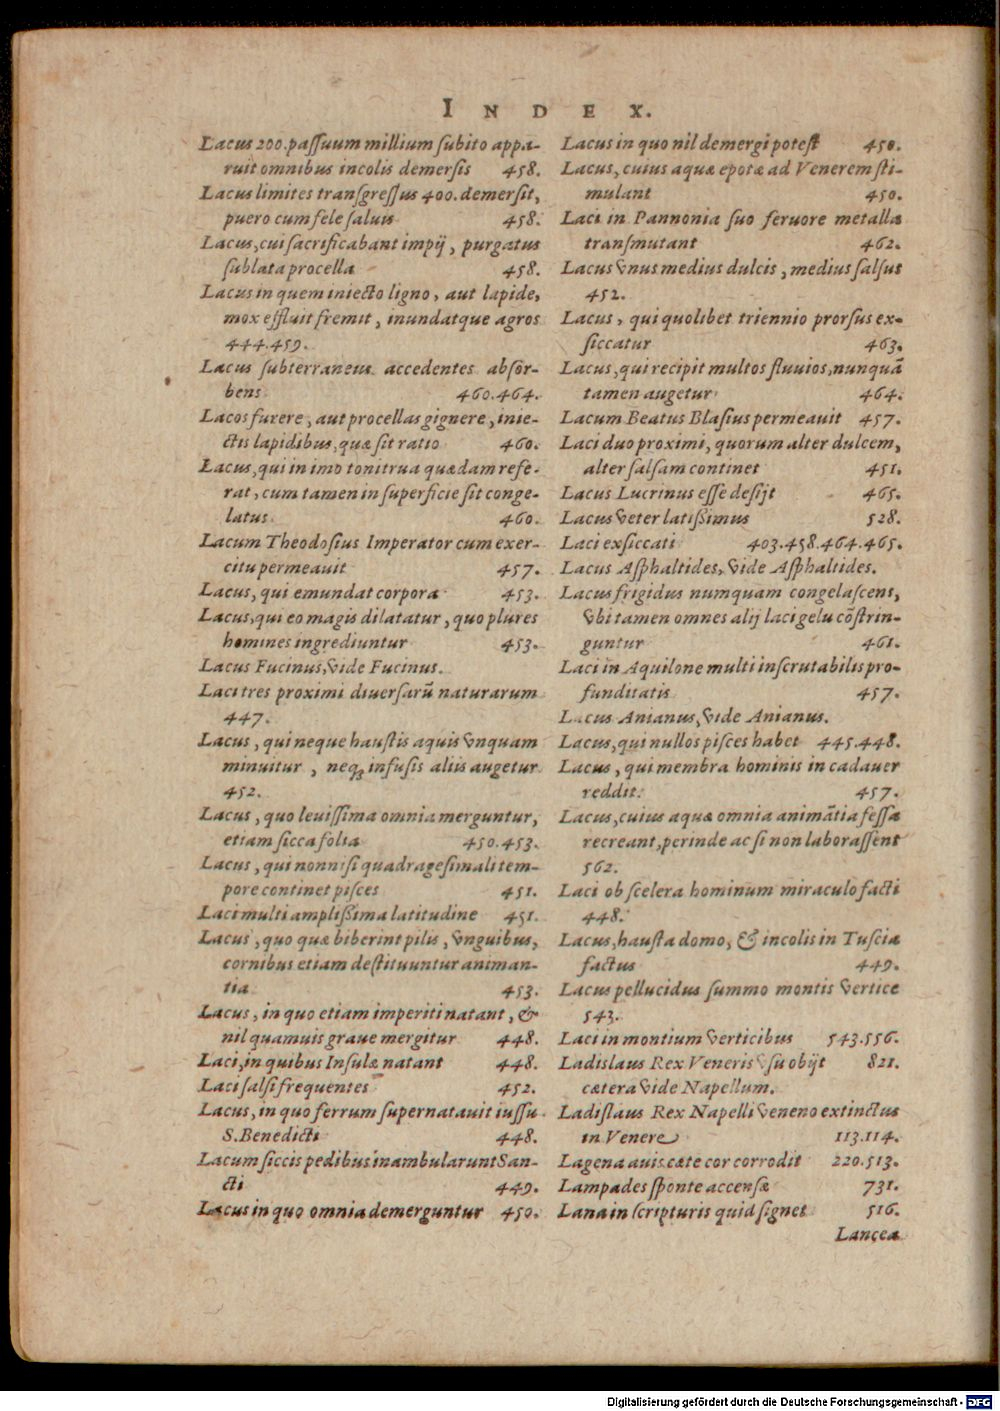 INDEX.
Lacus 200. paſſuum millium ſubito appa-
ruit omnibus incolis demerſis 458.
Lacus limites tranſgreſſus 400. demerſit,
puero cum fele ſaluis 458.
Lacus, cui ſacrificabant impij, purgatus
ſublata procella 458.
Lacus in quem iniecto ligno, aut lapide,
mox effluit fremit, inundatque agros
444.459.
Lacus ſubterraneus accedentes abſor-
bens 460.464.
Lacos furere, aut procellas gignere, inie-
ctis lapidibus, quæ ſit ratio 460.
Lacus, qui in imo tonitrua quædam refe-
rat, cum tamen in ſuperficie ſit conge-
latus 460.
Lacum Theodoſius Imperator cum exer-
citu permeauit 457.
Lacus, qui emundat corpora 453.
Lacus, qui eo magis dilatatur, quo plures
homines ingrediuntur 453.
Lacus Fucinus, vide Fucinus.
Laci tres proximi diuerſarũ naturarum
447.
Lacus, qui neque hauſtis aquis vnquam
minuitur, neqꝫ infuſis aliis augetur
452.
Lacus, quo leuiſſima omnia merguntur,
etiam ſicca folia 450.453.
Lacus, qui nonniſi quadrageſimali tem-
pore continet piſces 451.
Laci multi ampliſsima latitudine 451.
Lacus, quo quæ biberint pilis, vnguibus,
cornibus etiam deſtituuntur animan-
tia 453.
Lacus, in quo etiam imperiti natant, &
nil quamuis graue mergitur 448.
Laci, in quibus Inſulæ natant 448.
Laci ſalſi frequentes 452.
Lacus, in quo ferrum ſupernatauit iuſſu
S. Benedicti 448.
Lacum ſiccis pedibus inambularunt San-
cti 449.
Lacus in quo omnia demerguntur 450.
Lacus in quo nil demergi poteſt 450.
Lacus, cuius aquæ epotæ ad Venerem ſti-
mulant 450.
Laci in Pannonia ſuo feruore metalla
tranſmutant 462.
Lacus vnus medius dulcis, medius ſalſus
452.
Lacus, qui quolibet triennio prorſus ex-
ſiccatur 463.
Lacus, qui recipit multos fluuios, nunquã
tamen augetur 464.
Lacum Beatus Blaſius permeauit 457.
Laci duo proximi, quorum alter dulcem,
alter ſalſam continet 451.
Lacus Lucrinus eſſe deſijt 465.
Lacus veter latiſsimus 528.
Laci exſiccati 403.458.464.465.
Lacus Aſphaltides, vide Aſphaltides.
Lacus frigidus numquam congelaſcens,
vbi tamen omnes alij laci gelu cõſtrin-
guntur 461.
Laci in Aquilone multi inſcrutabilis pro-
funditatis 457.
Lacus Anianus, vide Anianus.
Lacus, qui nullos piſces habet 445.448.
Lacus, qui membra hominis in cadauer
reddit. 457.
Lacus, cuius aquæ omnia animãtia feſſa
recreant, perinde ac ſi non laboraſſent
562.
Laci ob ſcelera hominum miraculo facti
448.
Lacus, hauſta domo, & incolis in Tuſcia
factus 449.
Lacus pellucidus ſummo montis vertice
543.
Laci in montium verticibus 543.556.
Ladislaus Rex Veneris vſu obijt 821.
cætera vide Napellum.
Ladiſlaus Rex Napelli veneno extinctus
in Venere 113.114.
Lagena auis cæte cor corrodit 220.513.
Lampades ſponte accenſæ 731.
Lana in ſcripturis quid ſignet 516.
Lancea
Digitalisierung gefördert durch die Deutsche Forschungsgemeinschaft - DFG